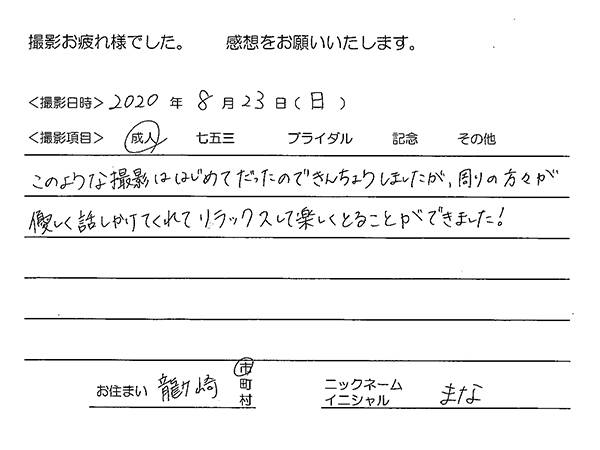 撮影お疲れ様でした。 感想をお願いいたします。
<撮影日時> 2020 年 8 月 23 日 ( 日 )
<撮影項目> 成人 七五三 ブライダル 記念 その他
このような撮影ははじめてだったのできんちょうしましたが、周りの方々が
優しく話しかけてくれてリラックスして楽しくとることができました!
お住まい 龍ヶ崎 市 町 村 ニックネーム イニシャル まな